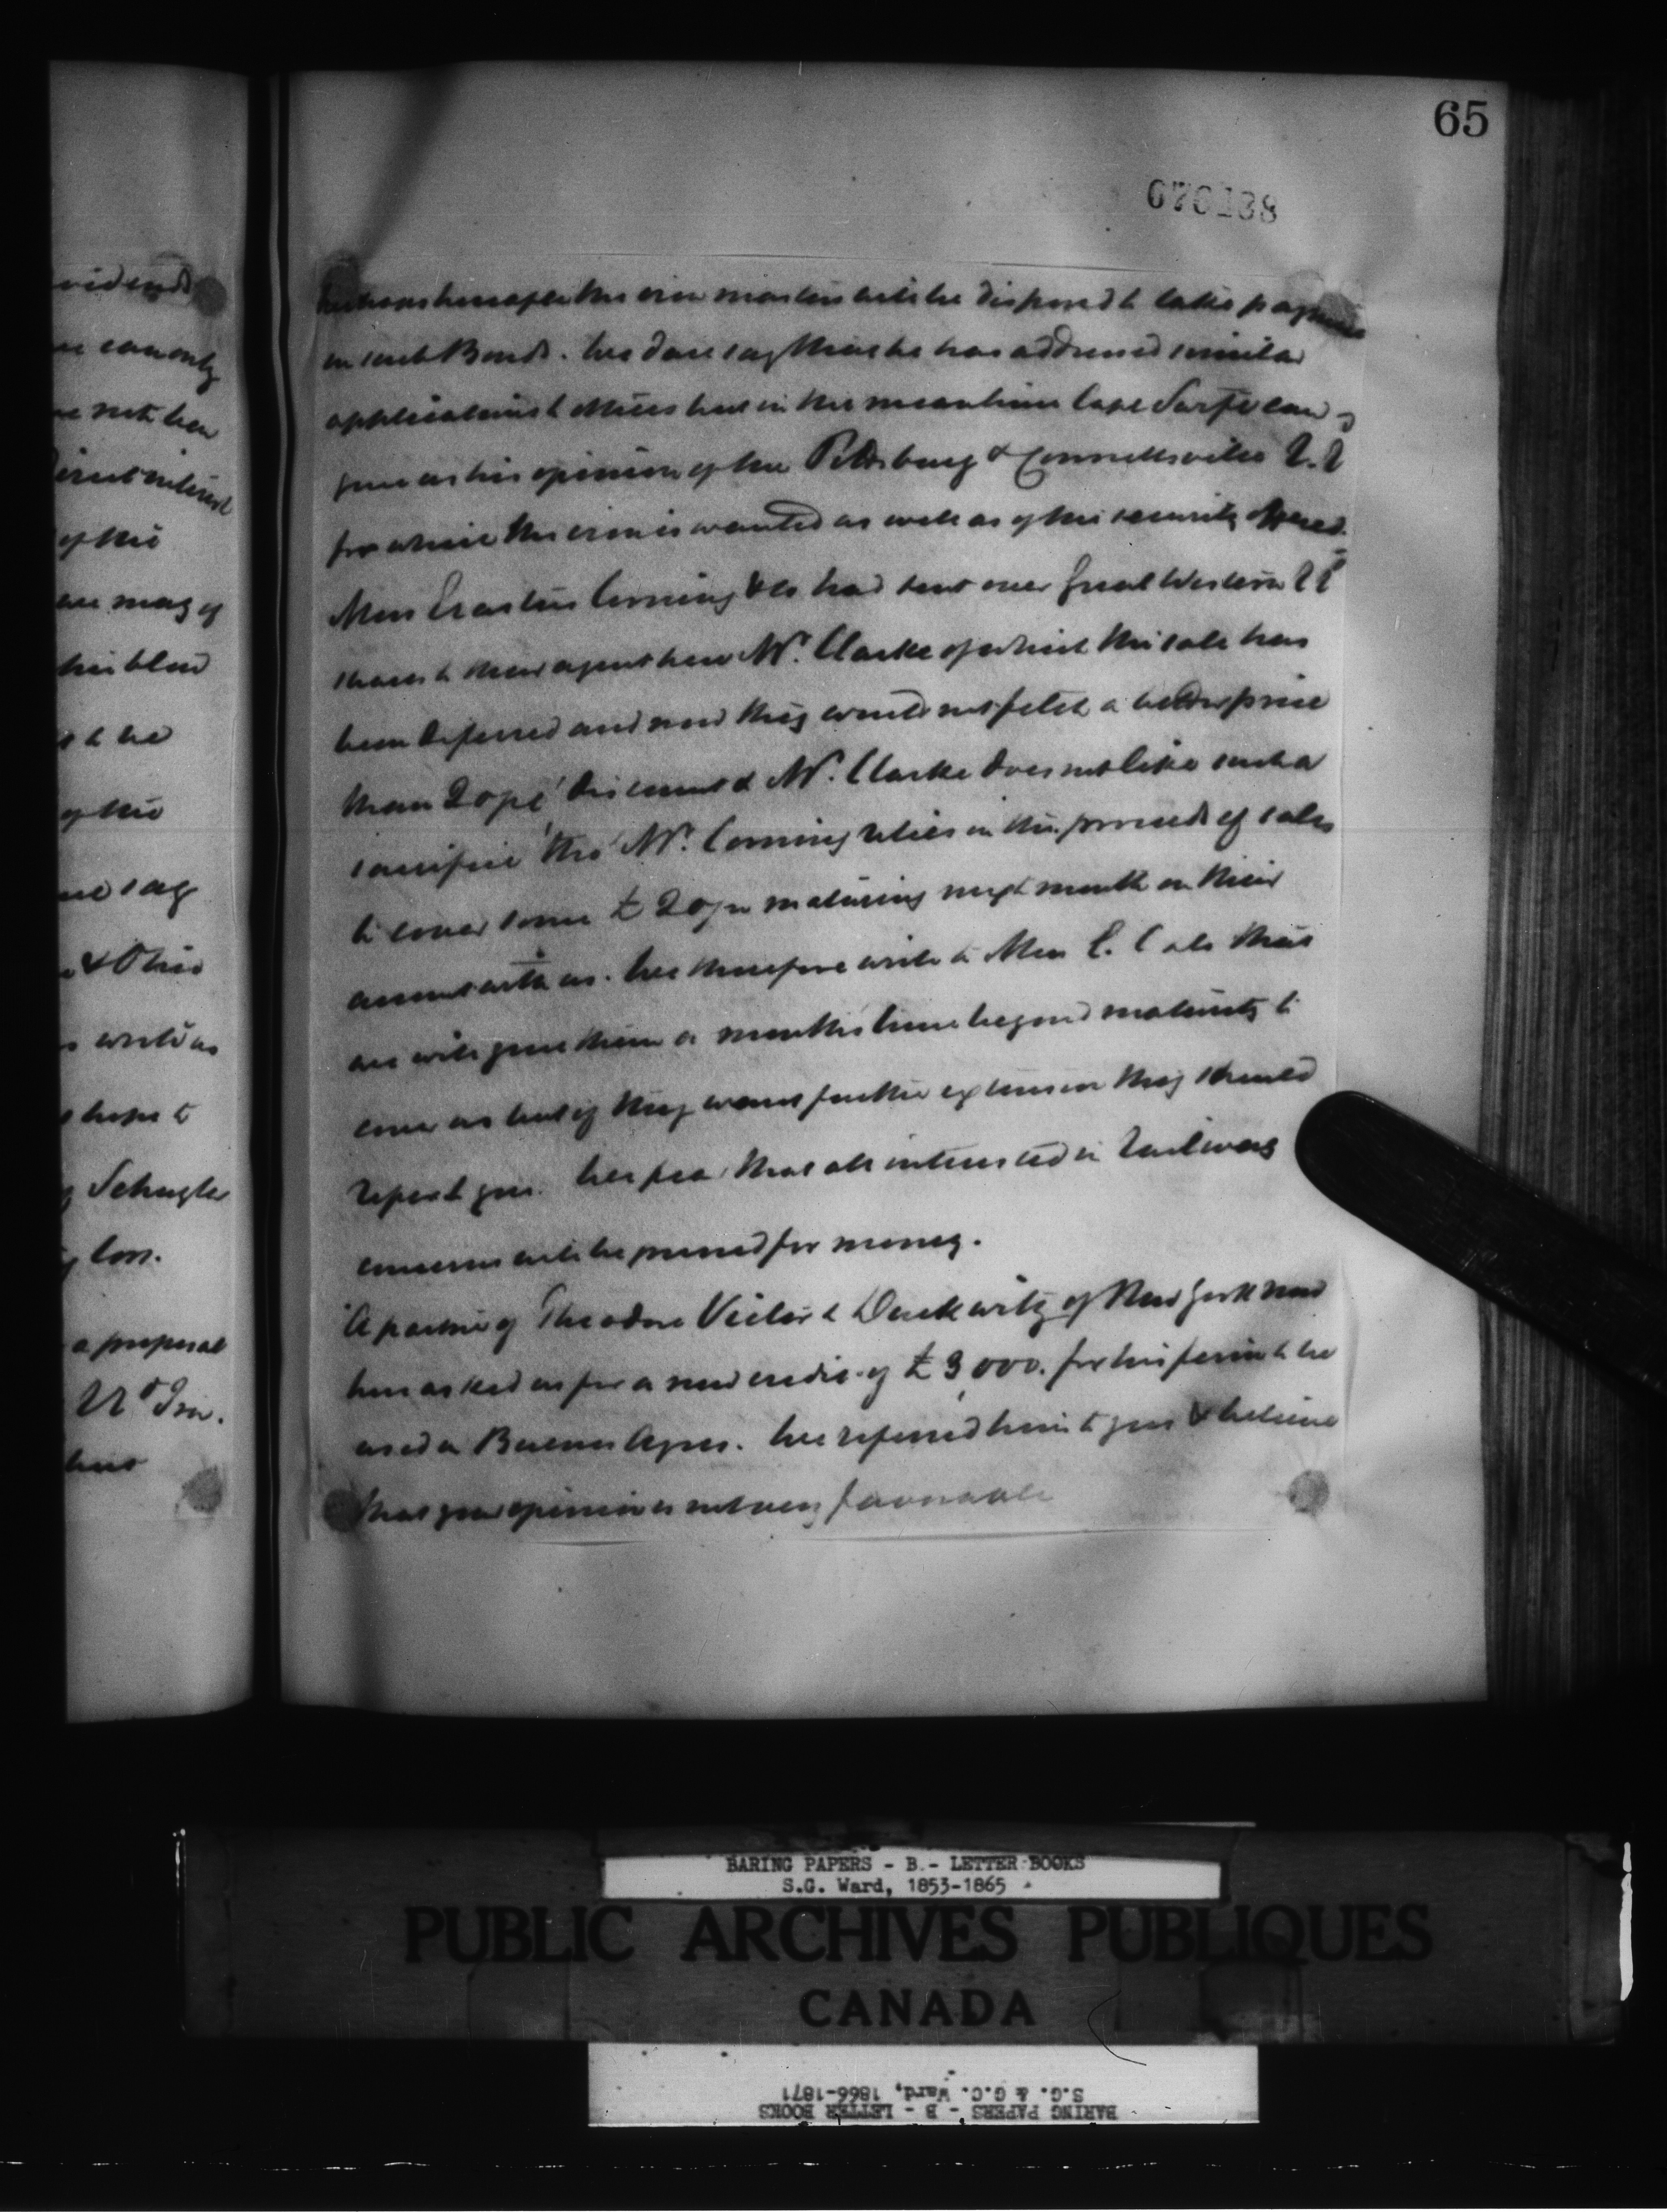 65
676138
vidends
we can only
not been
direct interest
of the
we may of
the blow
to be
of the
we say
& Ohio
write us
hope to
Schuyler
loss.
a proposal
that the iron masters will be disposed to take payment
in such Bonds. We dare say that he has addressed similar
applications to others but in the meantime Capt can
give us his opinion of the Pittsburg & Connellsville R.R
for which the iron is wanted as well as of the security offered.
Mess Erastus Corning & Co had sent over Great Western RR
shares to their agent here Mr. Clarke of which the sale has
been deferred and now they would not fetch a better price
than 20 pc discount & Mr. Clarke does not like such a
sacrifice tho' Mr. Corning relies on the proceeds of sales
to cover some £20/m maturing next month on their
account with us. We therefore write to Mess E. C & Co that
we will give them a month's time beyond maturity to
cover us but if they want further extension they should
repeat you. We fear that all interested in Railway
concerns will be pressed for money.
A partner of Theodore Victor & Duckwitz of New York now
here asked us for a new credit of £3,000. for his firm to be
used in Buenos Ayres. We referred him to you & believe
that your opinion is not very favorable
BARING PAPERS - B - LETTER BOOKS
S.G. Ward, 1853-1865
PUBLIC ARCHIVES PUBLIQUES
CANADA
BARING PAPERS - B - LETTER BOOKS
S.G. & G.C. Ward, 1866-1871